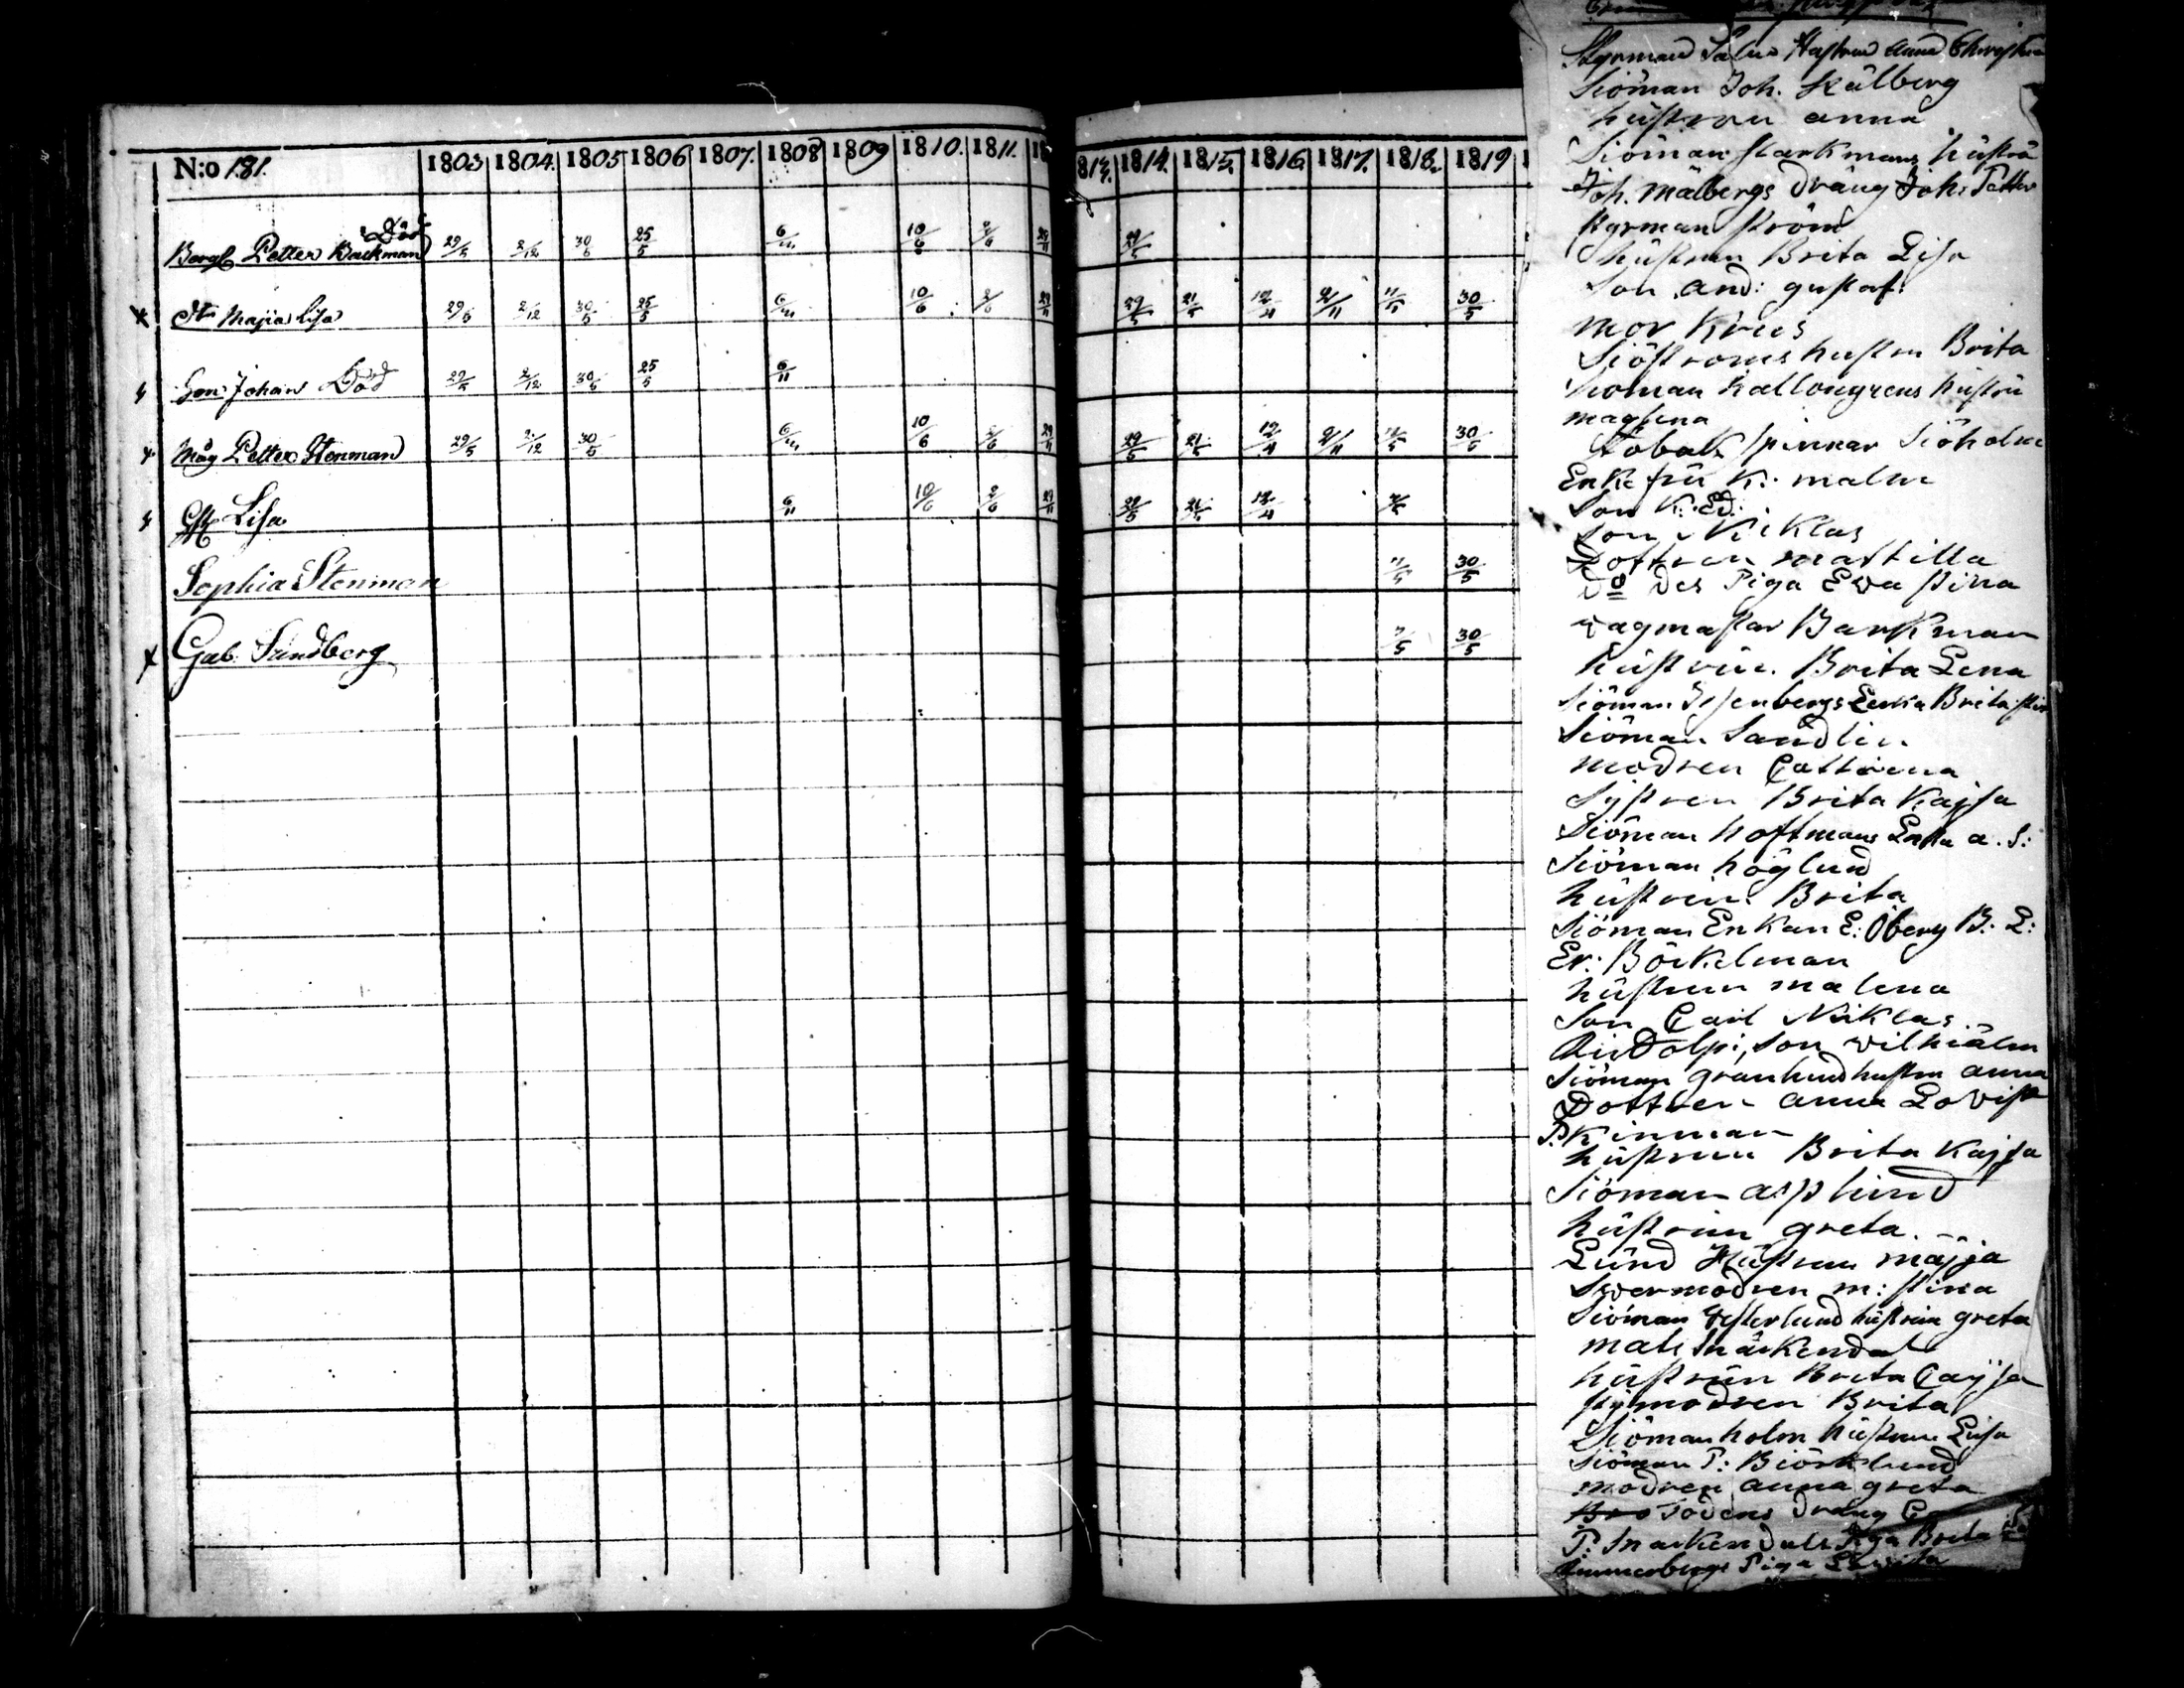 N:o 181. 1803 1804. 1805 1806 1807. 1808 1809 1810. 1811. 18
813. 1814. 1815. 1816. 1817. 1818. 1819 1
Död
Borgl Petter Backman 29/5 2/12 30/6 25/5 6/11 10/6 2/6 29/11 29/5
Maja Lisa 29/5 2/12 30/5 25/5 6/11 10/6 2/6 29/11 29/5 21/5 12/4 2/11 11/5 30/5
Son Johan Död 29/5 2/12 30/5 25/5 6/11
Måg Petter Stenman 29/5 2/12 30/5 6/11 10/6 2/6 29/11 29/5 21/5 12/4 2/11 11/5 30/5
Lisa 6/11 10/6 2/6 29/11 29/5 21/5 12/4
Sophia Stenman 11/5 30/5
Gab. Sundberg 7/5 30/5
Styrman Hustru Anna
Siöman Joh. Kälberg
hustrun anna
Siöman Starkmans hustru
Joh. Mälbergs dräng Joh. Petter
Styrman Ström
hustrun Brita Lisa
Son And: gustaf
mor Krus
Siöströms hustru Brita
Sioman Kallongrens hustru
maglena
Tobaks spinnar Siöholm
Enkefru K: malm
Son K: Ed:
Son Niklas
Dottren mattilla
Do des Piga Ewa stina
vagmastar Barkman
hustrun. Brita Lena
Siöman Isenbergs Enka Brita
Siöman Sandlin
modren Cattrina
Systren Brita Kajsa
Siöman hoffmans Enka a. S:
Siöman höglund
hustrun Brita
Siöman Enkan E: Öberg B: L:
Er: Böckelman
hustrun malena
Son Carl Niklas
Rudolpi, son vilhiälm
Siöman granlund hustru anna
Dottren anna Lovisa
P: Kinman
hustrun Brita Kajsa
Siöman asplund
hustrun greta
Lund Hustrun majja
Svermodren m: stina
Siöman Westerlund hustrun greta
mats Snäckendal
hustrun Brita Cajsa
stymodren Brita
Siöman holm hustrun Lisa
Siöman P: Biörklund
modren anna greta
Bro Todens dräng
P: Snackendals Piga Brita
Piga